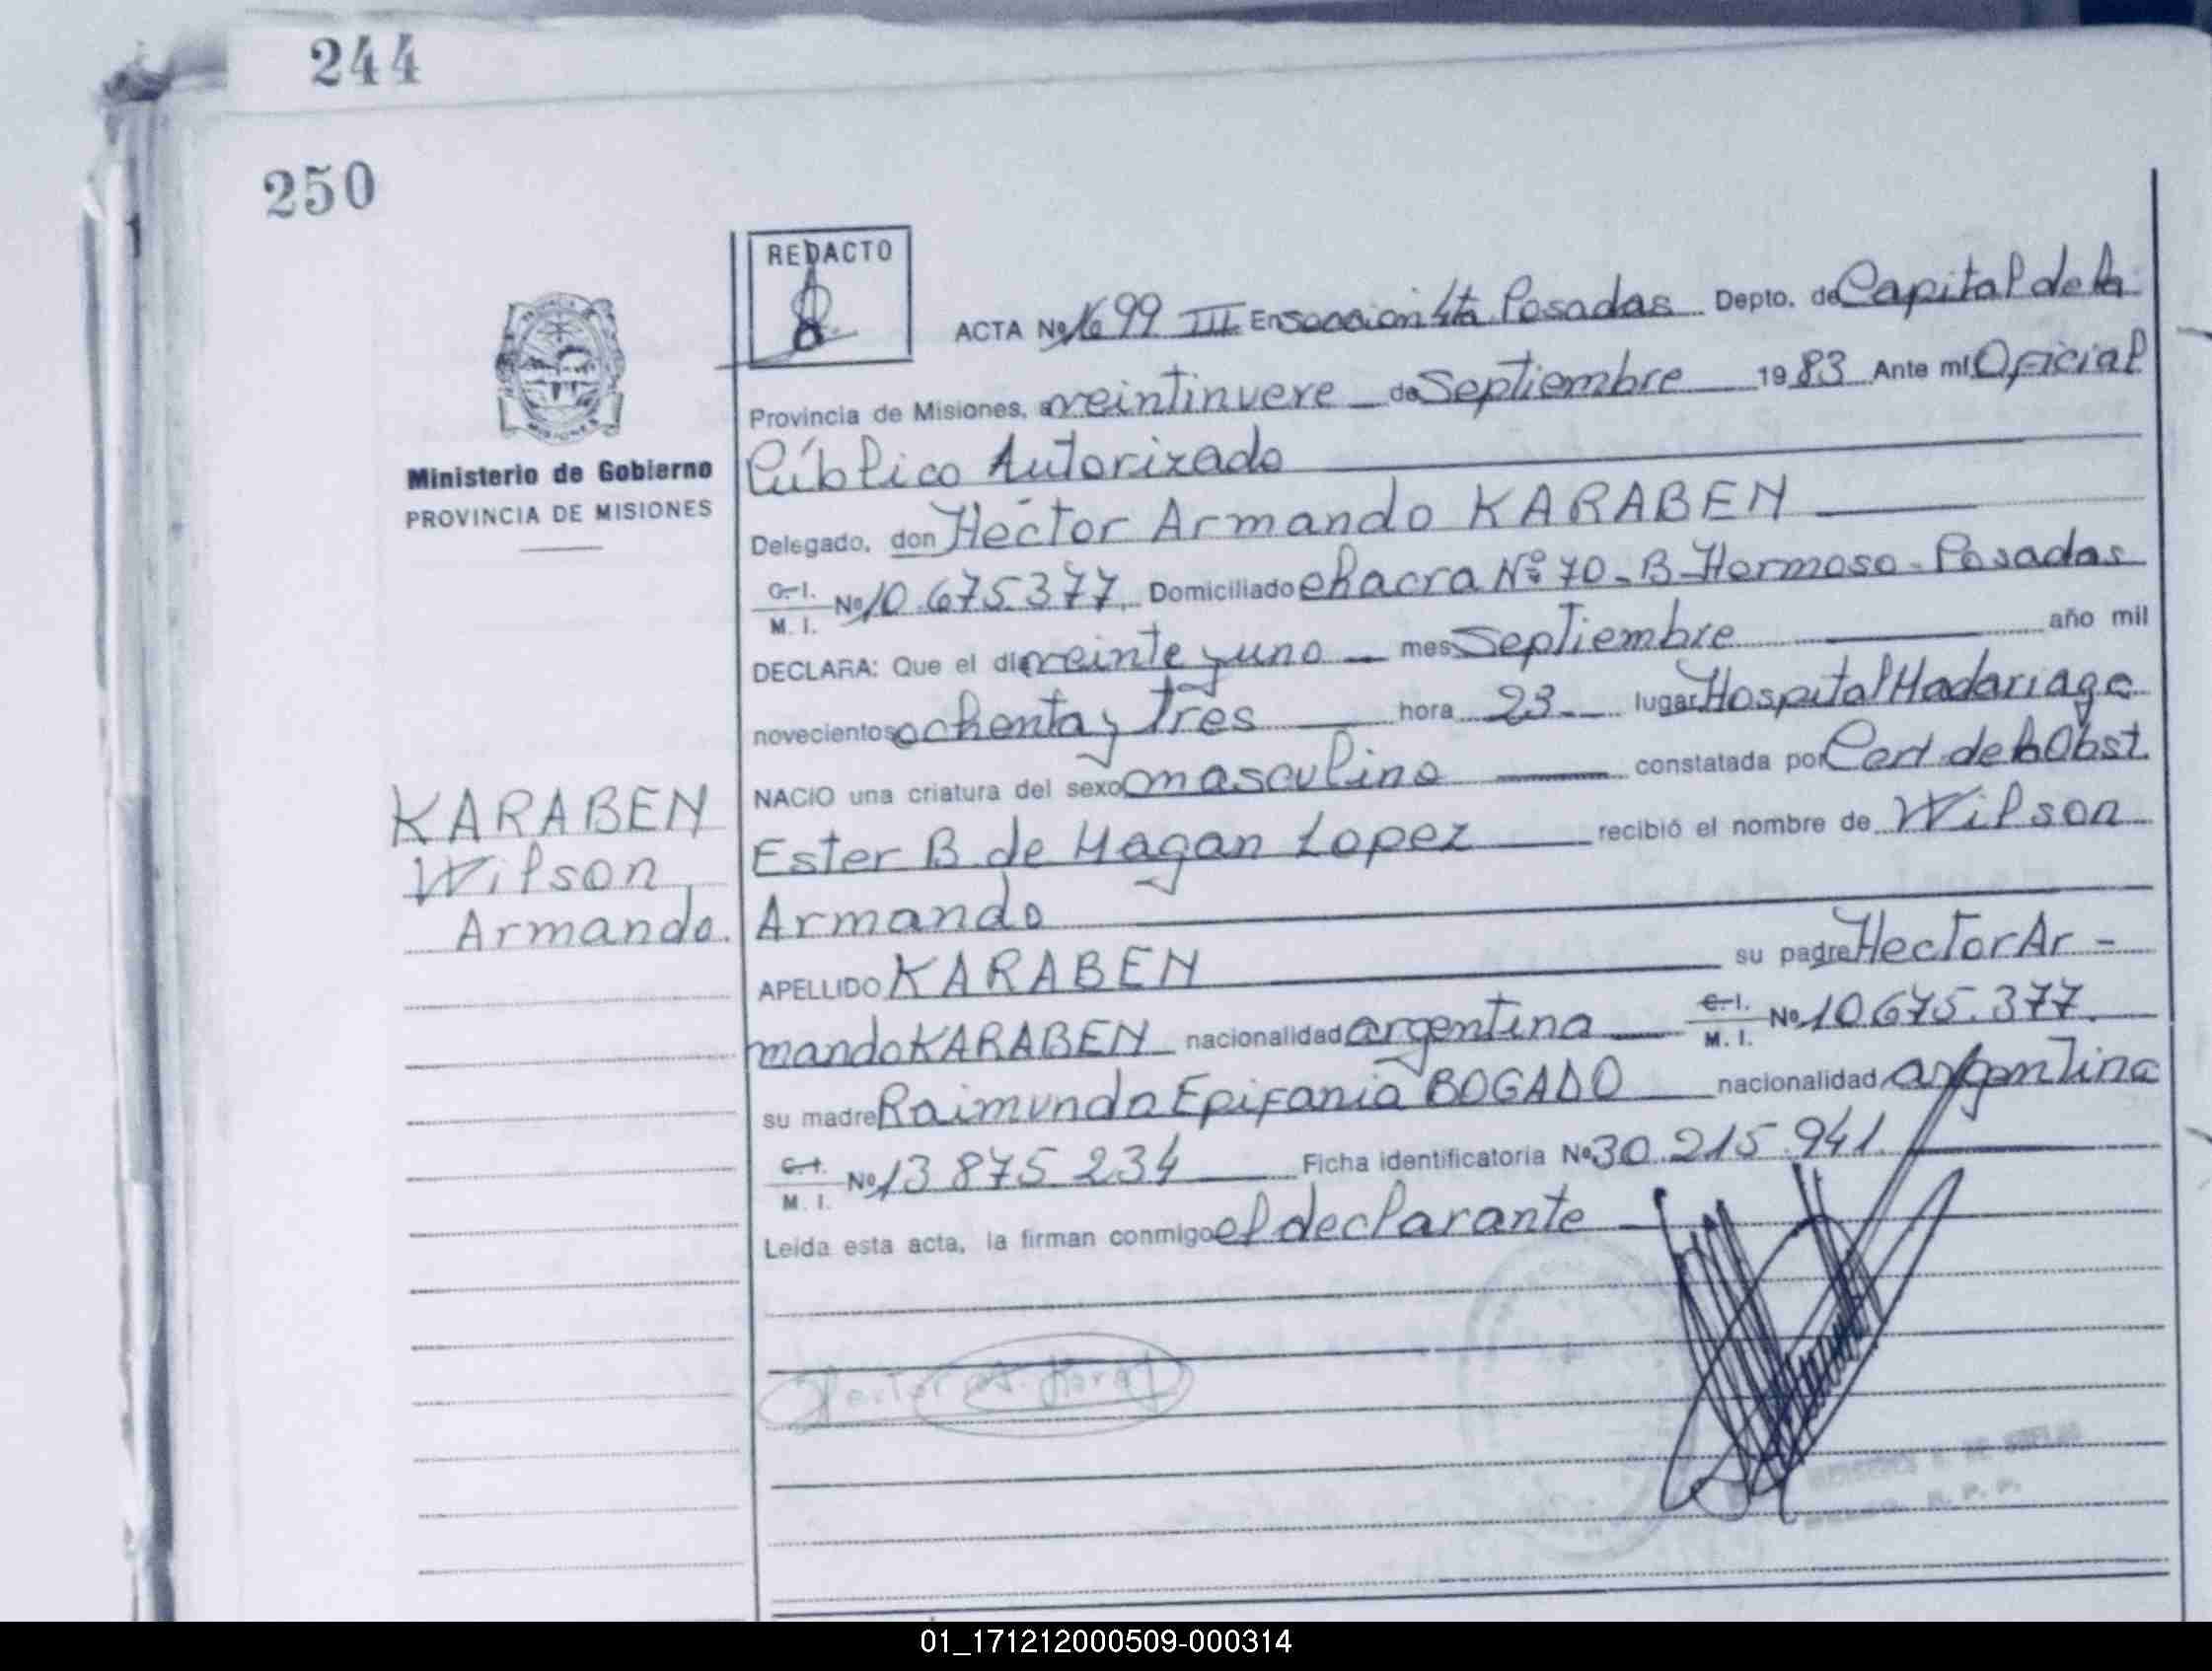 244
250
REDACTO
ACTA Nº 1699 III En sección 4ta Posadas Depto. de Capital de la
Provincia de Misiones, a veintinueve de Septiembre 1983 Ante mí Oficial
Público Autorizado
Ministerio de Gobierno
PROVINCIA DE MISIONES
Delegado, don Héctor Armando KARABEN
C.I.
M.I. Nº 10.675.377, Domiciliado chacra Nº 70 - B- Hermoso - Posadas
DECLARA: Que el día veinte y uno mes Septiembre año mil
novecientos ochenta y tres hora 23 lugar Hospital Madariaga
NACIO una criatura del sexo masculino constatada por Cert. de la Obst.
Ester B. de Magan Lopez recibió el nombre de Wilson
Armando
KARABEN
Wilson
Armando.
APELLIDO KARABEN su padre Hector Ar-
mando KARABEN nacionalidad argentina C.I.
M.I. Nº 10.675.377.
su madre Raimunda Epifania BOGADO nacionalidad argentina
C.I.
M.I. Nº 13 875 234 Ficha identificatoria Nº 30.215.941.
Leída esta acta, la firman conmigo el declarante
01_171212000509-000314